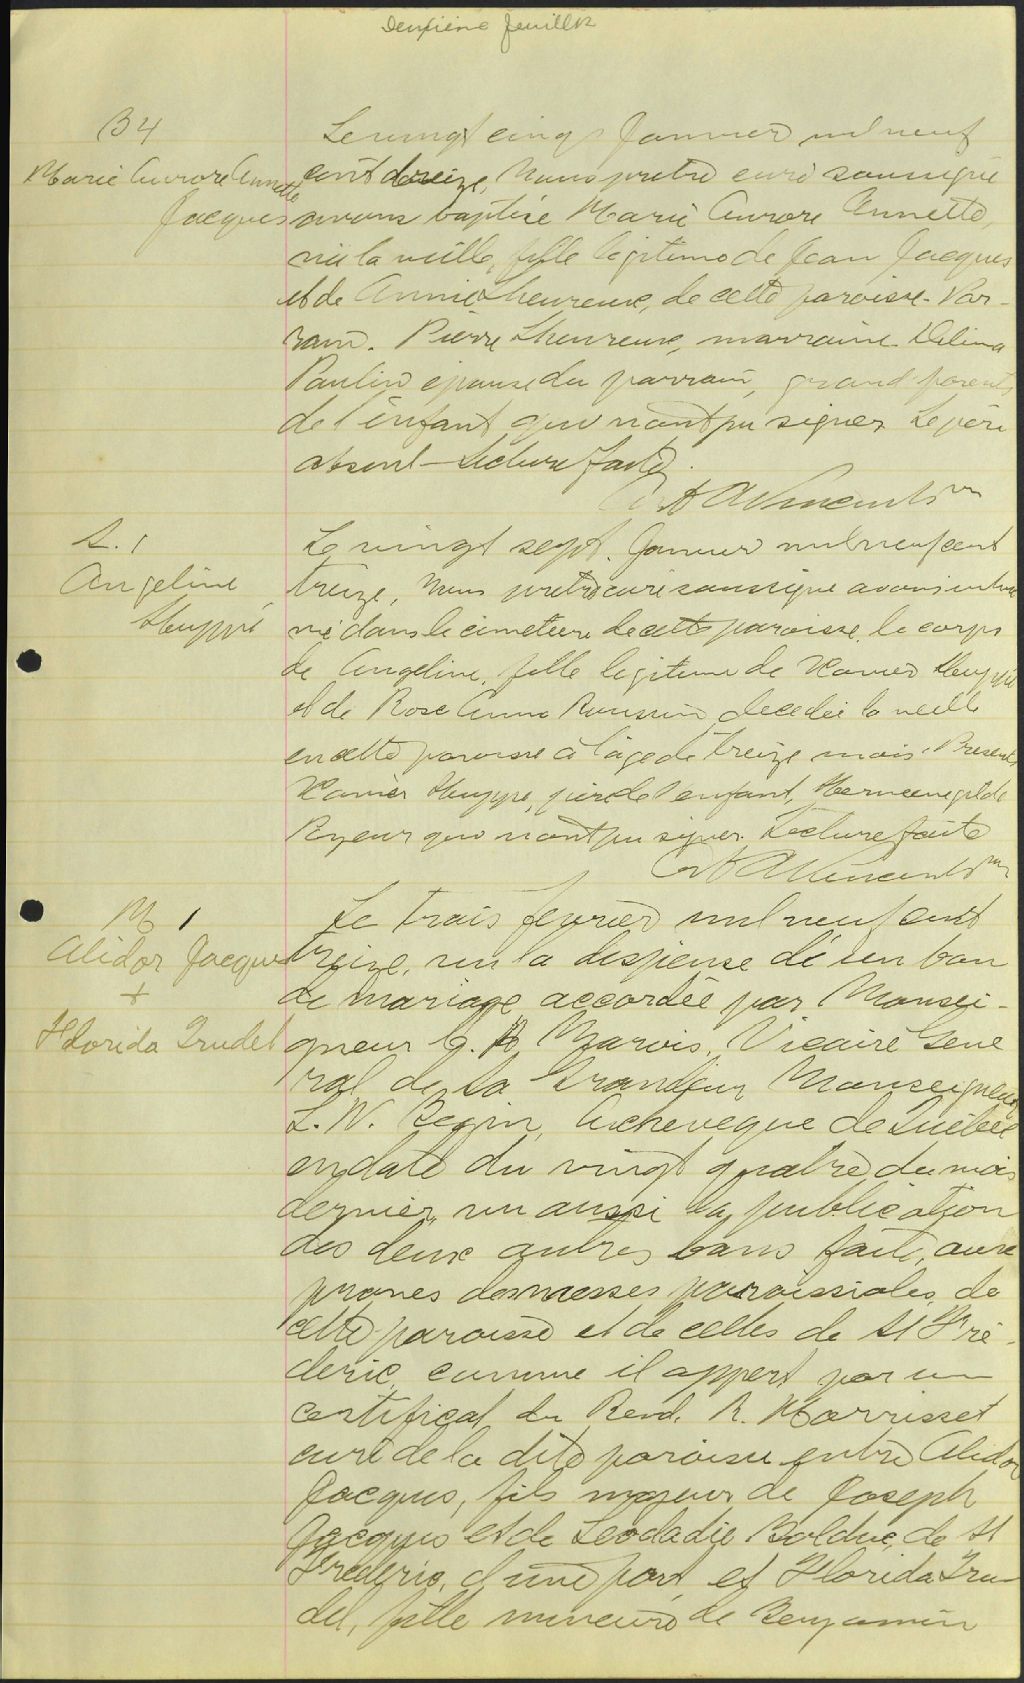 Deuxième feuillet
B4
Marie Aurore Annette
Jacques
Le vingt cinq Janvier mil neuf
cent treize, Nous prêtre curé soussigné
avons baptisé Marie Aurore Annette,
née la veille, fille légitime de Jean Jacques
et de Annie Lheureux, de cette paroisse. Par-
rain. Pierre Lheureux, marraine Délima
Paulin épouse du parrain, grand-parents
de l'enfant qui n'ont pu signer. Le père
absent - Lecture faite.
A Vincent ptre
S. 1
Angeline
Huppé
Le vingt sept Janvier mil neuf cent
treize, Nous prêtre curé soussigné avons inhu
mé dans le cimetière de cette paroisse le corps
de Angeline, fille légitime de Xavier Huppé
et de Rose Anna Roussin décédée la veille
en cette paroisse à l'âge de treize mois. Présents
Xavier Huppé, père de l'enfant, Hermenegilde
Royeur qui n'ont pu signer. Lecture faite
A Vincent ptre
M 1
Alidor Jacques
+
Florida Trudel
Le trois février mil neuf cent
treize, vu la dispense d'un ban
de mariage accordée par Monsei-
gneur C. A. Marois, Vicaire Géné
ral de Sa Grandeur Monseigneur
L. N. Bégin, Archevêque de Québec
en date du vingt quatre du mois
dernier, vu aussi la publication
des deux autres bans faite aux
prônes des messes paroissiales de
cette paroisse et de celles de St Fré-
déric, comme il appert par un
certificat du Révd. R. Morrisset
curé de la dite paroisse entre Alidor
Jacques, fils majeur de Joseph
Jacques et de Léodadie Bolduc, de St
Frédéric, d'une part et Florida Tru-
del, fille mineure de Benjamin